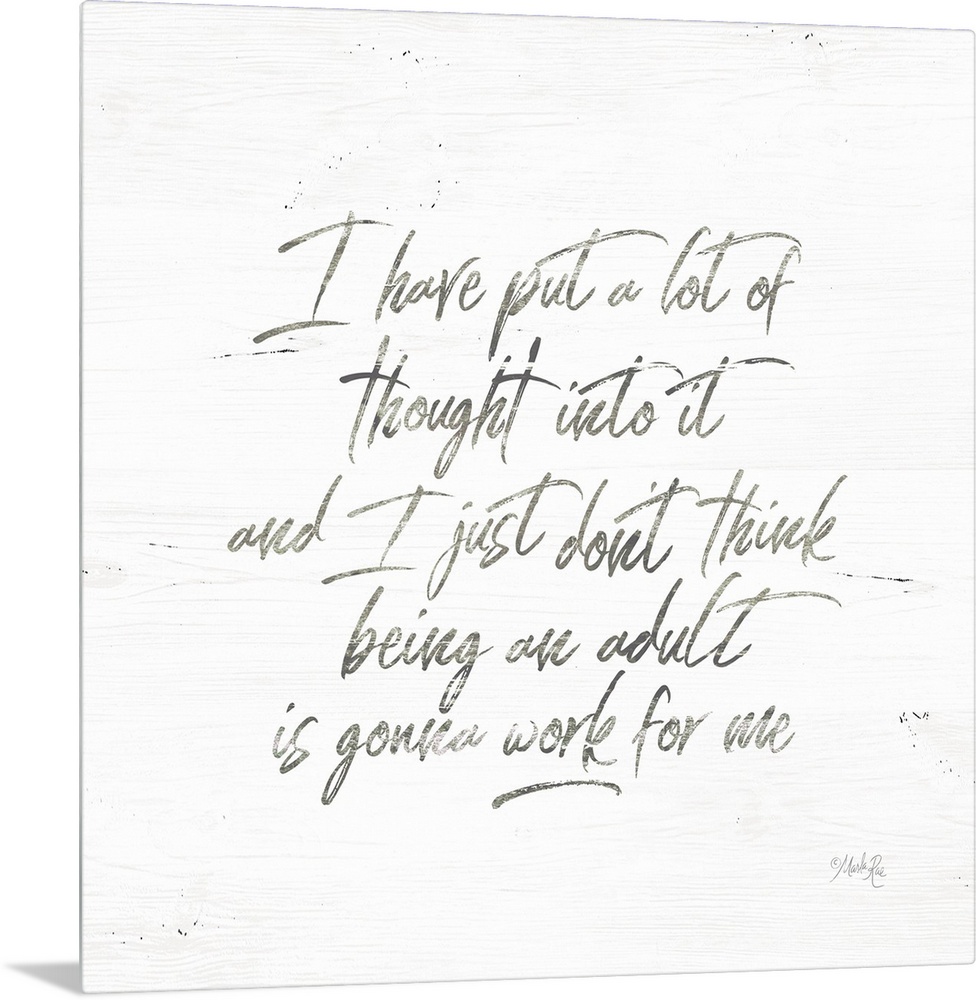 I have put a lot of
thought into it
and I just don't think
being an adult
is gonna work for me
© Marla Rae